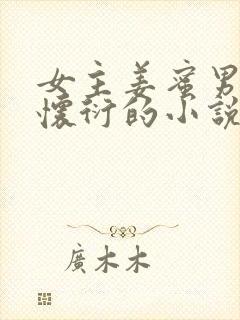 女主姜蜜男
懷衍的小說
廣木木